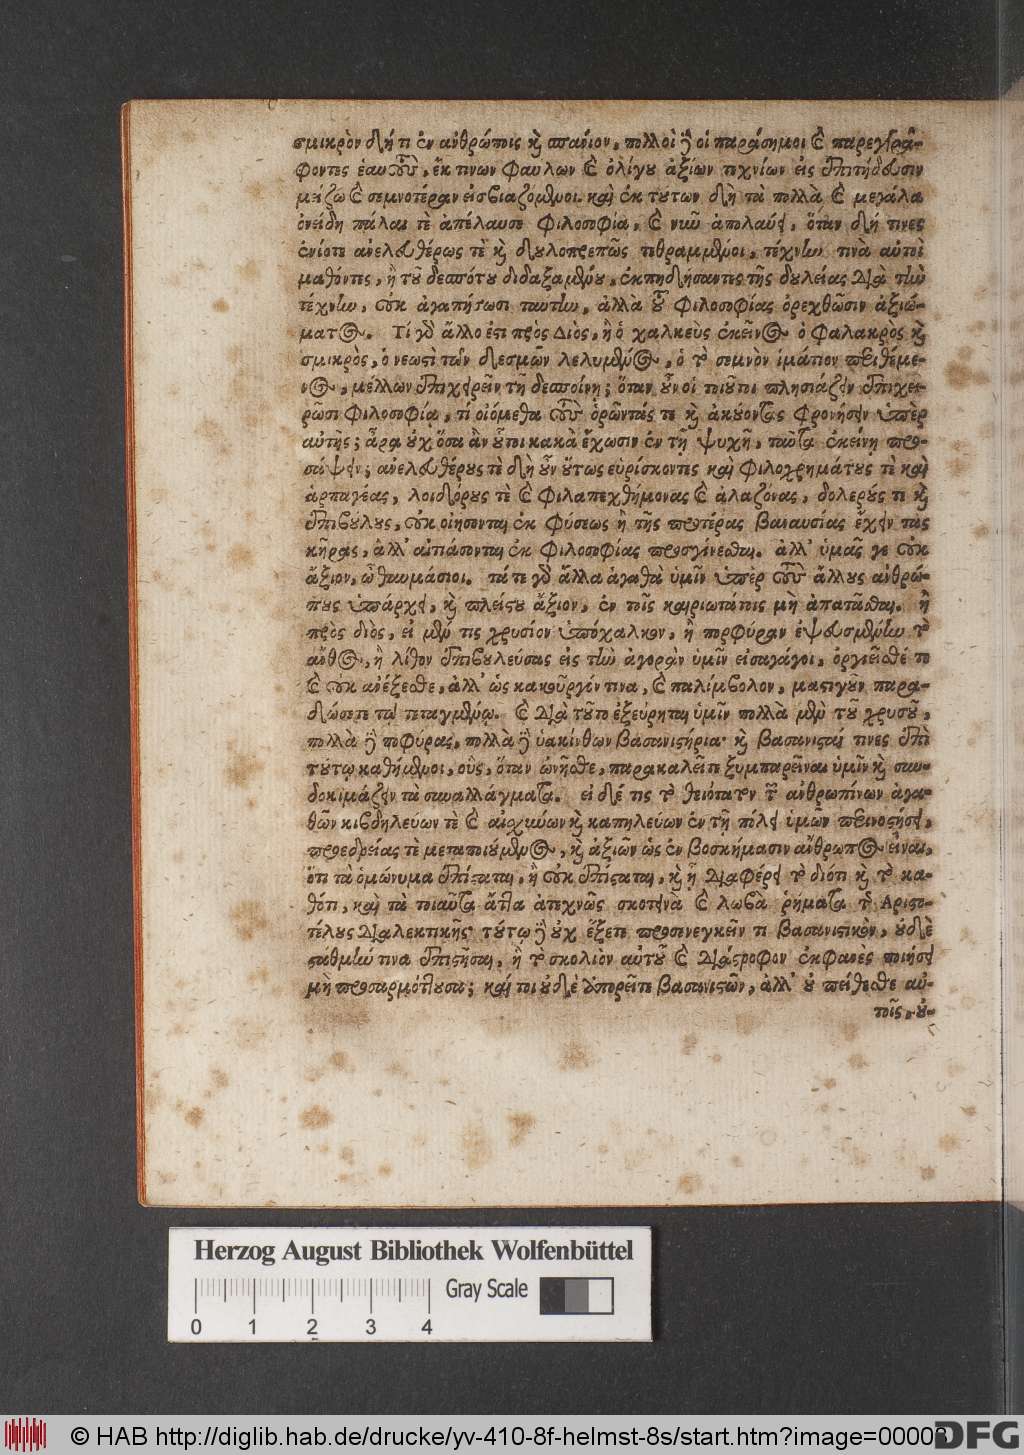 σμικρὸν δή τι ἐν ἀνθρώποις καὶ σπάνιον, πολλοὶ δὲ οἱ παράσημοι καὶ παρεγγρά-
φοντες ἑαυτοὺς, ἔκ τινων φαύλων καὶ ὀλίγου ἀξίων τεχνίων εἰς ἐπιτήδευσιν
μείζω καὶ σεμνοτέραν εἰσβιαζόμενοι. καὶ ἐκ τούτων δὴ τὰ πολλὰ καὶ μεγάλα
ὀνείδη πάλαι τὲ ἀπέλαυσε φιλοσοφία, καὶ νῦν ἀπολαύει, ὅταν δή τινες
ἐνίοτε ἀνελευθέρως τὲ καὶ δουλοπρεπῶς τεθραμμένοι, τέχνην τινὰ αὐτοὶ
μαθόντες, ἢ τοῦ δεσπότου διδαξαμένου, ἐκπηδήσαντες τῆς δουλείας διὰ τὴν
τέχνην, οὐκ ἀγαπήσωσι ταύτην, ἀλλὰ τοῦ φιλοσοφίας ὀρεχθῶσιν ἀξιώ-
ματος. Τί γὰρ ἄλλο ἐστι πρὸς Διὸς, ἢ ὁ χαλκεὺς ἐκεῖνος ὁ φαλακρὸς καὶ
σμικρὸς, ὁ νεωστὶ τῶν δεσμῶν λελυμένος, ὁ τὸ σεμνὸν ἱμάτιον περιθέμε-
νος, μέλλων ἐπιχειρεῖν τῇ δεσποίνῃ; ὅταν οὖν οἱ τοιοῦτοι πλησιάζειν ἐπιχει-
ρῶσι φιλοσοφίᾳ, τί οἰόμεθα τοὺς ὁρῶντάς τε καὶ ἀκούοντας φρονήσειν ὑπὲρ
αὐτῆς; ἆρα οὐχ ὅσα ἂν οὗτοι κακὰ ἔχωσιν ἐν τῇ ψυχῇ, ταῦτα ἐκείνῃ προ-
σάψειν; ἀνελευθέρους τὲ δὴ οὖν οὕτως εὑρίσκοντες καὶ φιλοχρημάτους τὲ καὶ
ἁρπαγέας, λοιδόρους τὲ καὶ φιλαπεχθήμονας καὶ ἀλαζόνας, δολερούς τι καὶ
ἐπιβούλους, οὐκ οἰήσονται ἐκ φύσεως ἢ τῆς προτέρας βαναυσίας ἔχειν τὰς
κῆρας, ἀλλ' αἰτιάσονται ἐκ φιλοσοφίας προσγίνεσθαι. ἀλλ' ὑμᾶς γε οὐκ
ἄξιον, ὦ θαυμάσιοι. τά τε γὰρ ἄλλα ἀγαθὰ ὑμῖν ὑπὲρ τοὺς ἄλλους ἀνθρώ-
πους ὑπάρχει, καὶ πλείστου ἄξιον, ἐν τοῖς καιριωτάτοις μὴ ἀπατᾶσθαι. ἢ
πρὸς διὸς, εἰ μέν τις χρυσίον ὑπόχαλκον, ἢ πορφύραν ἐψευσμένην τὸ
ἄνθος, ἢ λίθον ἐπιβουλεύσας εἰς τὴν ἀγορὰν ὑμῖν εἰσαγάγοι, ὀργιεῖσθέ τε
καὶ οὐκ ἀνέξεσθε, ἀλλ' ὡς κακοῦργόν τινα, καὶ παλίμβολον, μαστιγοῦν παρα-
δώσετε τῷ τεταγμένῳ. καὶ διὰ τοῦτο ἐξεύρηται ὑμῖν πολλὰ μὲν τοῦ χρυσοῦ,
πολλὰ δὲ ποφύρας, πολλὰ δὲ ὑακίνθων βασανιστήρια· καὶ βασανισταί τινες ἐπὶ
τούτῳ καθήμενοι, οὓς, ὅταν ὠνῆσθε, παρακαλεῖτε ξυμπαρεῖναι ὑμῖν καὶ συν-
δοκιμάζειν τὰ συναλλάγματα. εἰ δέ τις τὸ θειότατον τῶν ἀνθρωπίνων ἀγα-
θῶν κιβδηλεύων τὲ καὶ αἰσχύνων καὶ καπηλεύων ἐν τῇ πόλει ὑμῶν περινοστήσει,
προεδρείας τὲ μεταποιούμενος, καὶ ἀξιῶν ὡς ἐν βοσκήμασιν ἄνθρωπος εἶναι,
ὅτι τὰ ὁμώνυμα ἐπίσταται, ἢ οὐκ ἐπίσταται, καὶ ᾗ διαφέρει τὸ διότι καὶ τὸ κα-
θότι, καὶ τὰ τοιαῦτα ἄττα ἀτεχνῶς σκοτεινὰ καὶ λωβὰ ῥήματα τῆς Αριστο-
τέλους διαλεκτικῆς· τούτῳ δὲ οὐχ ἕξετε προσενεγκεῖν τι βασανιστικὸν, οὐδὲ
στάθμην τινα ἐπιστῆσαι, ἢ τὸ σκολιὸν αὐτοῦ καὶ διάστροφον ἐκφανὲς ποιήσει
μὴ προσαρμόττουσα; καί τοι οὐδὲ ἀπορεῖτε βασανιστῶν, ἀλλ' οὐ πείθεσθε αὐ-
τοῖς. οὐ-
Herzog August Bibliothek Wolfenbüttel
Gray Scale
0 1 2 3 4
© HAB http://diglib.hab.de/drucke/yv-410-8f-helmst-8s/start.htm?image=00008
DFG